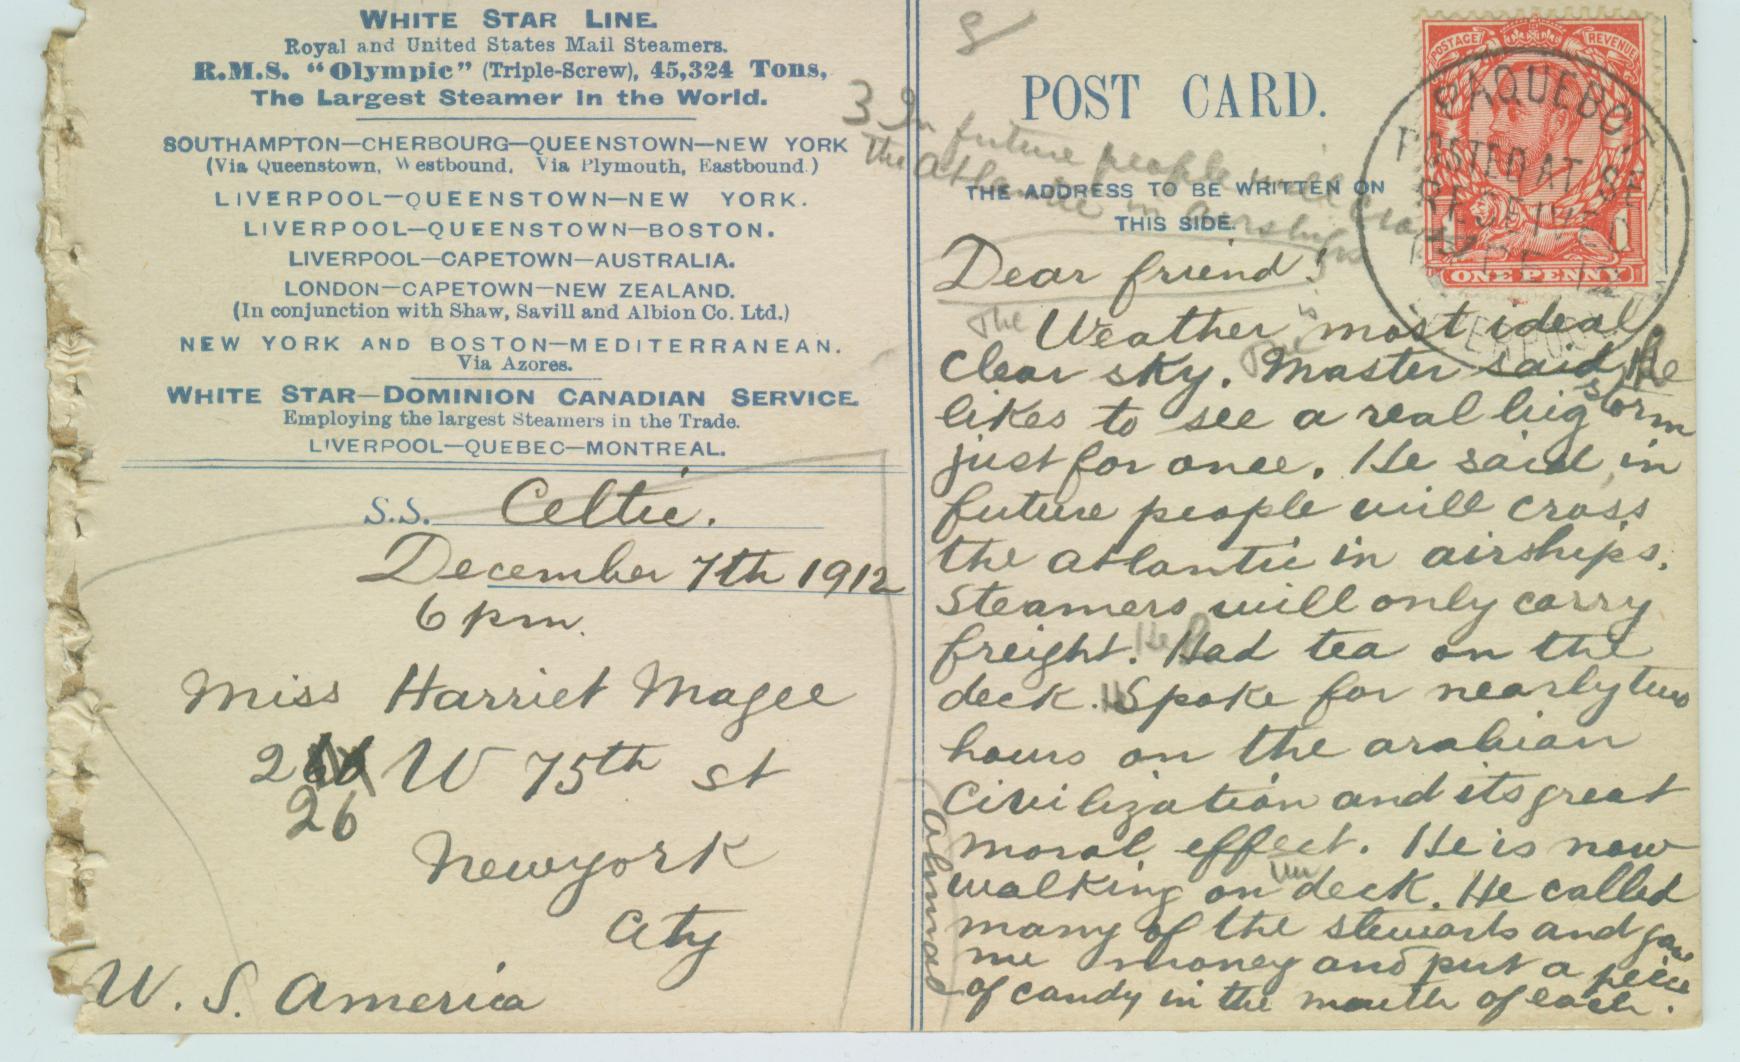 WHITE STAR LINE.
Royal and United States Mail Steamers.
R.M.S. "Olympic" (Triple-Screw), 45,324 Tons,
The Largest Steamer in the World.
SOUTHAMPTON—CHERBOURG—QUEENSTOWN—NEW YORK
(Via Queenstown, Westbound, Via Plymouth, Eastbound.)
LIVERPOOL—QUEENSTOWN—NEW YORK.
LIVERPOOL—QUEENSTOWN—BOSTON.
LIVERPOOL—CAPETOWN—AUSTRALIA.
LONDON—CAPETOWN—NEW ZEALAND.
(In conjunction with Shaw, Savill and Albion Co. Ltd.)
NEW YORK AND BOSTON—MEDITERRANEAN.
Via Azores.
WHITE STAR—DOMINION CANADIAN SERVICE.
Employing the largest Steamers in the Trade.
LIVERPOOL—QUEBEC—MONTREAL.
S.S. Celtic.
December 7th 1912
6 pm.
Miss Harriet Magee
2 W 75th st
26
Newyork
City
U. S. America
POST CARD.
3 In future people will cross
The Atlantic in airships
THE ADDRESS TO BE WRITTEN ON
THIS SIDE.
POSTAGE REVENUE
ONE PENNY
PAQUEBOT
POSTED AT SEA
RECEIVED
Dear friend!
The Weather is most ideal
clear sky. The Master said He
likes to see a real big storm
just for once. He said, in
future people will cross
the atlantic in airships.
Steamers will only carry
freight. He Had tea on the
deck. Spoke for nearly two
hours on the arabian
civilization and its great
moral effect. He is now
walking on deck. He called
many of the stewarts and gave
me money and put a peice
of candy in the mouth of each.
Ahmad